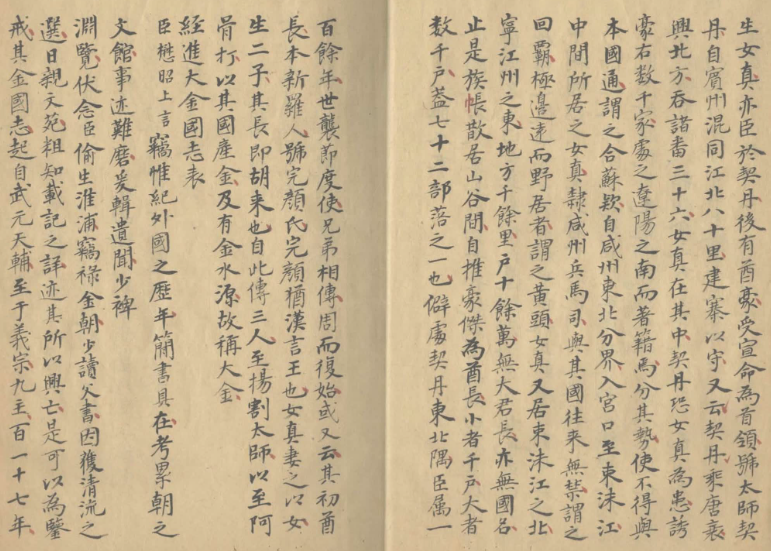 生女真亦臣於契丹後有酋豪受宣命為首領號太師契
丹自賓州混同江北八十里建寨以守又云契丹乘唐衰
興北方吞諸番三十六女真在其中契丹恐女真為患誘
豪右数千家處之遼陽之南而著籍焉分其勢使不得與
本國通謂之合蘇欵自咸州東北分界入宮口至東沫江
中間所居之女真隸咸州兵馬司與其國往来無禁謂之
回霸極邊逺而野居者謂之黄頭女真又居東沫江之北
寧江州之東地方千餘里戶十餘萬無大君長亦無國名
止是族帳散居山谷間自推豪傑為酋長小者千戶大者
数千戶蓋七十二部落之一也僻處契丹東北隅臣属一
百餘年世襲節度使兄弟相傳周而復始或又云其初酋
長本新羅人號完顔氏完顔楢漢言王也女真妻之以女
生二子其長即胡来也自此傳三人至楊割太師以至阿
骨打以其國產金及有金水源故稱大金
經進大金國志表
臣懋昭上言竊惟紀外國之歴年簡書具在考累朝之
文館事迹難磨爰輯遺聞少裨
淵覽伏念臣偷生淮浦竊禄金朝少讀父書因獲清流之
選日親文苑粗知載記之詳迹其所以興亡是可以為鑒
戒其金國志起自武元天輔至于義宗九主百一十七年